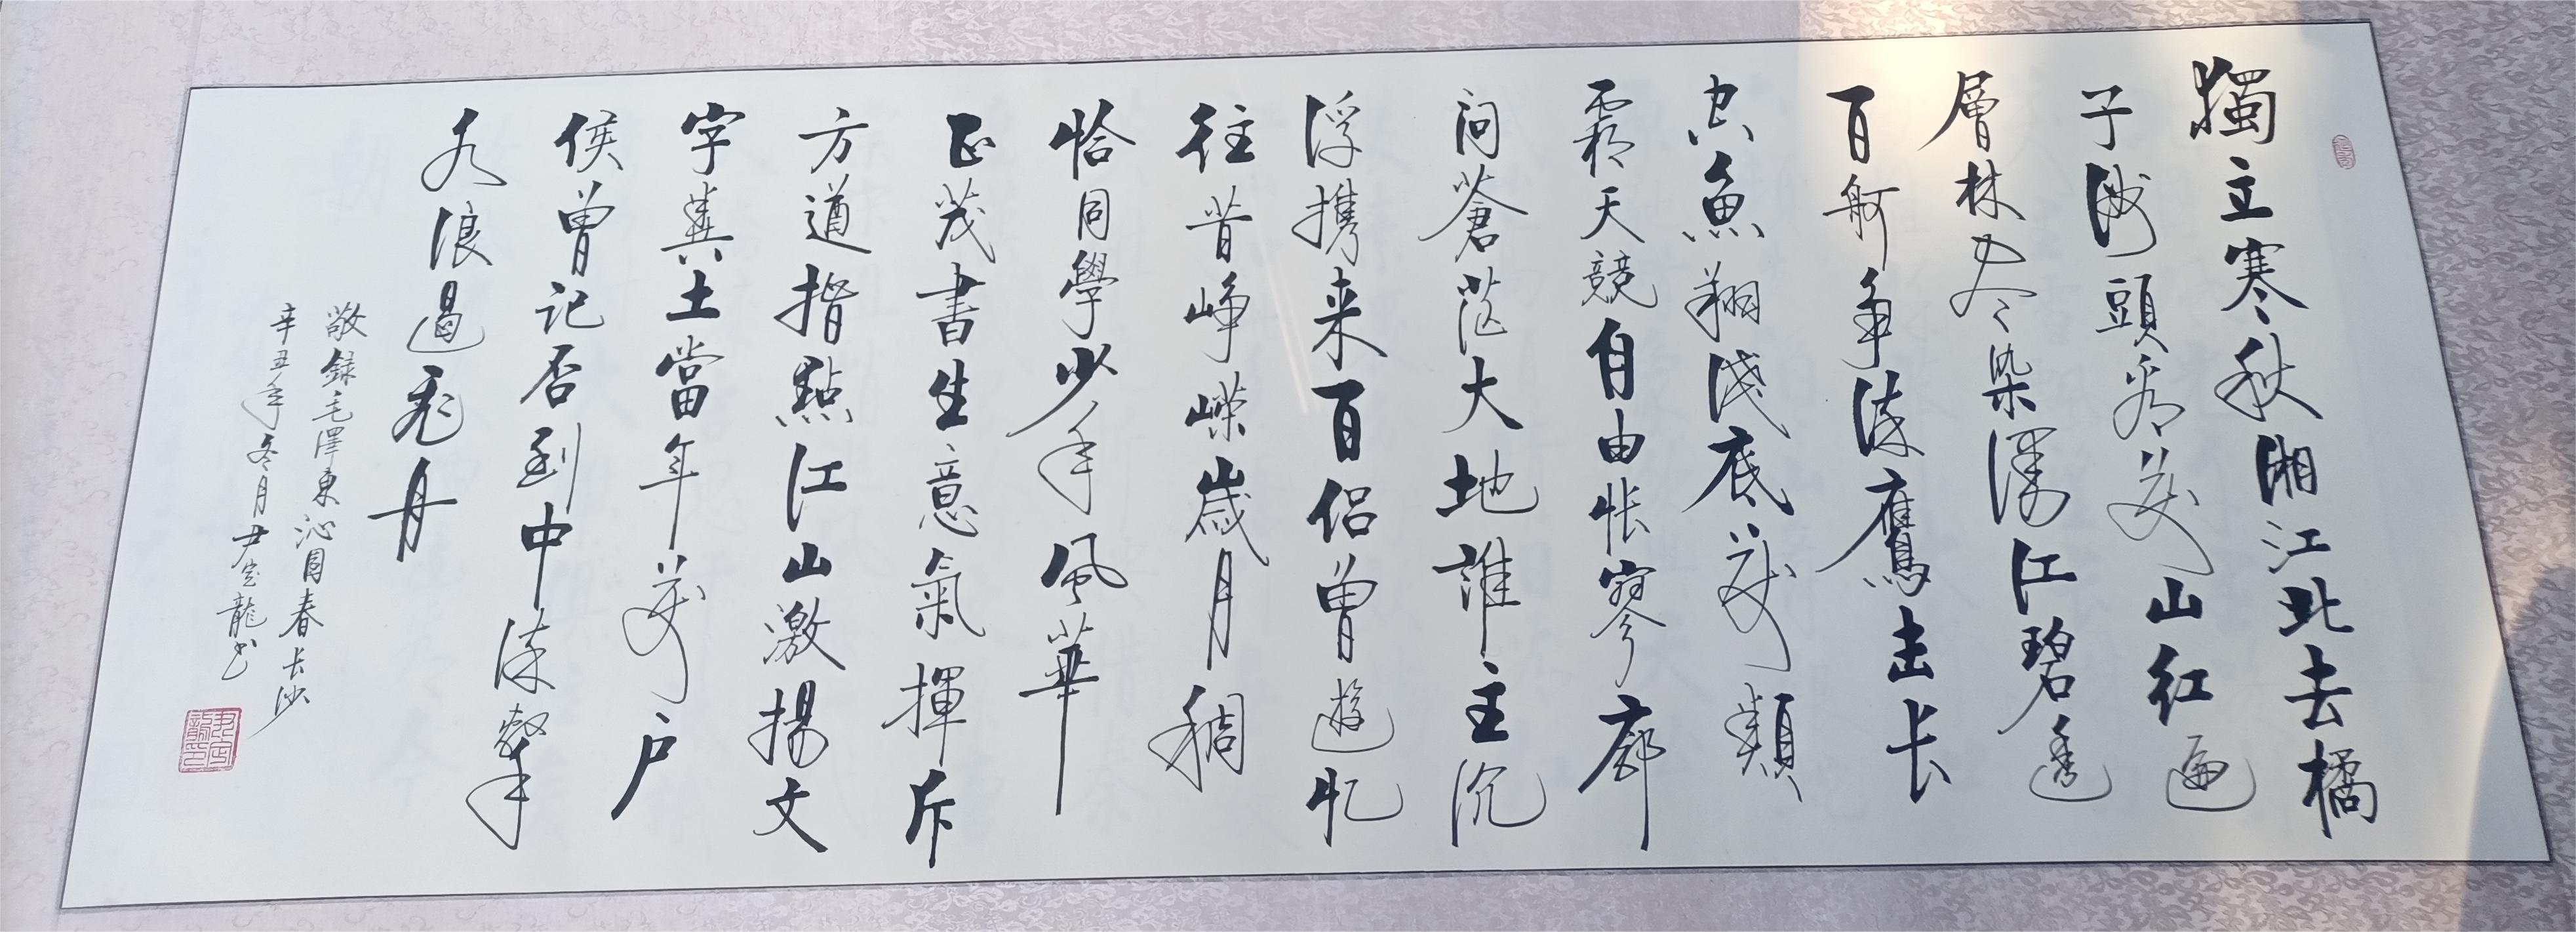 獨立寒秋湘江北去橘
子洲頭看萬山紅遍
層林盡染漫江碧透
百舸争流鷹击长
空魚翔淺底萬類
霜天競自由悵寥廓
问蒼茫大地誰主沉
浮携来百侣曾遊忆
往昔峥嶸歲月稠
恰同學少年風華
正茂書生意氣揮斥
方遒指點江山激揚文
字糞土當年萬户
侯曾记否到中流擊
水浪遏飛舟
敬録毛澤東沁園春长沙
辛丑年冬月尹宝龍书